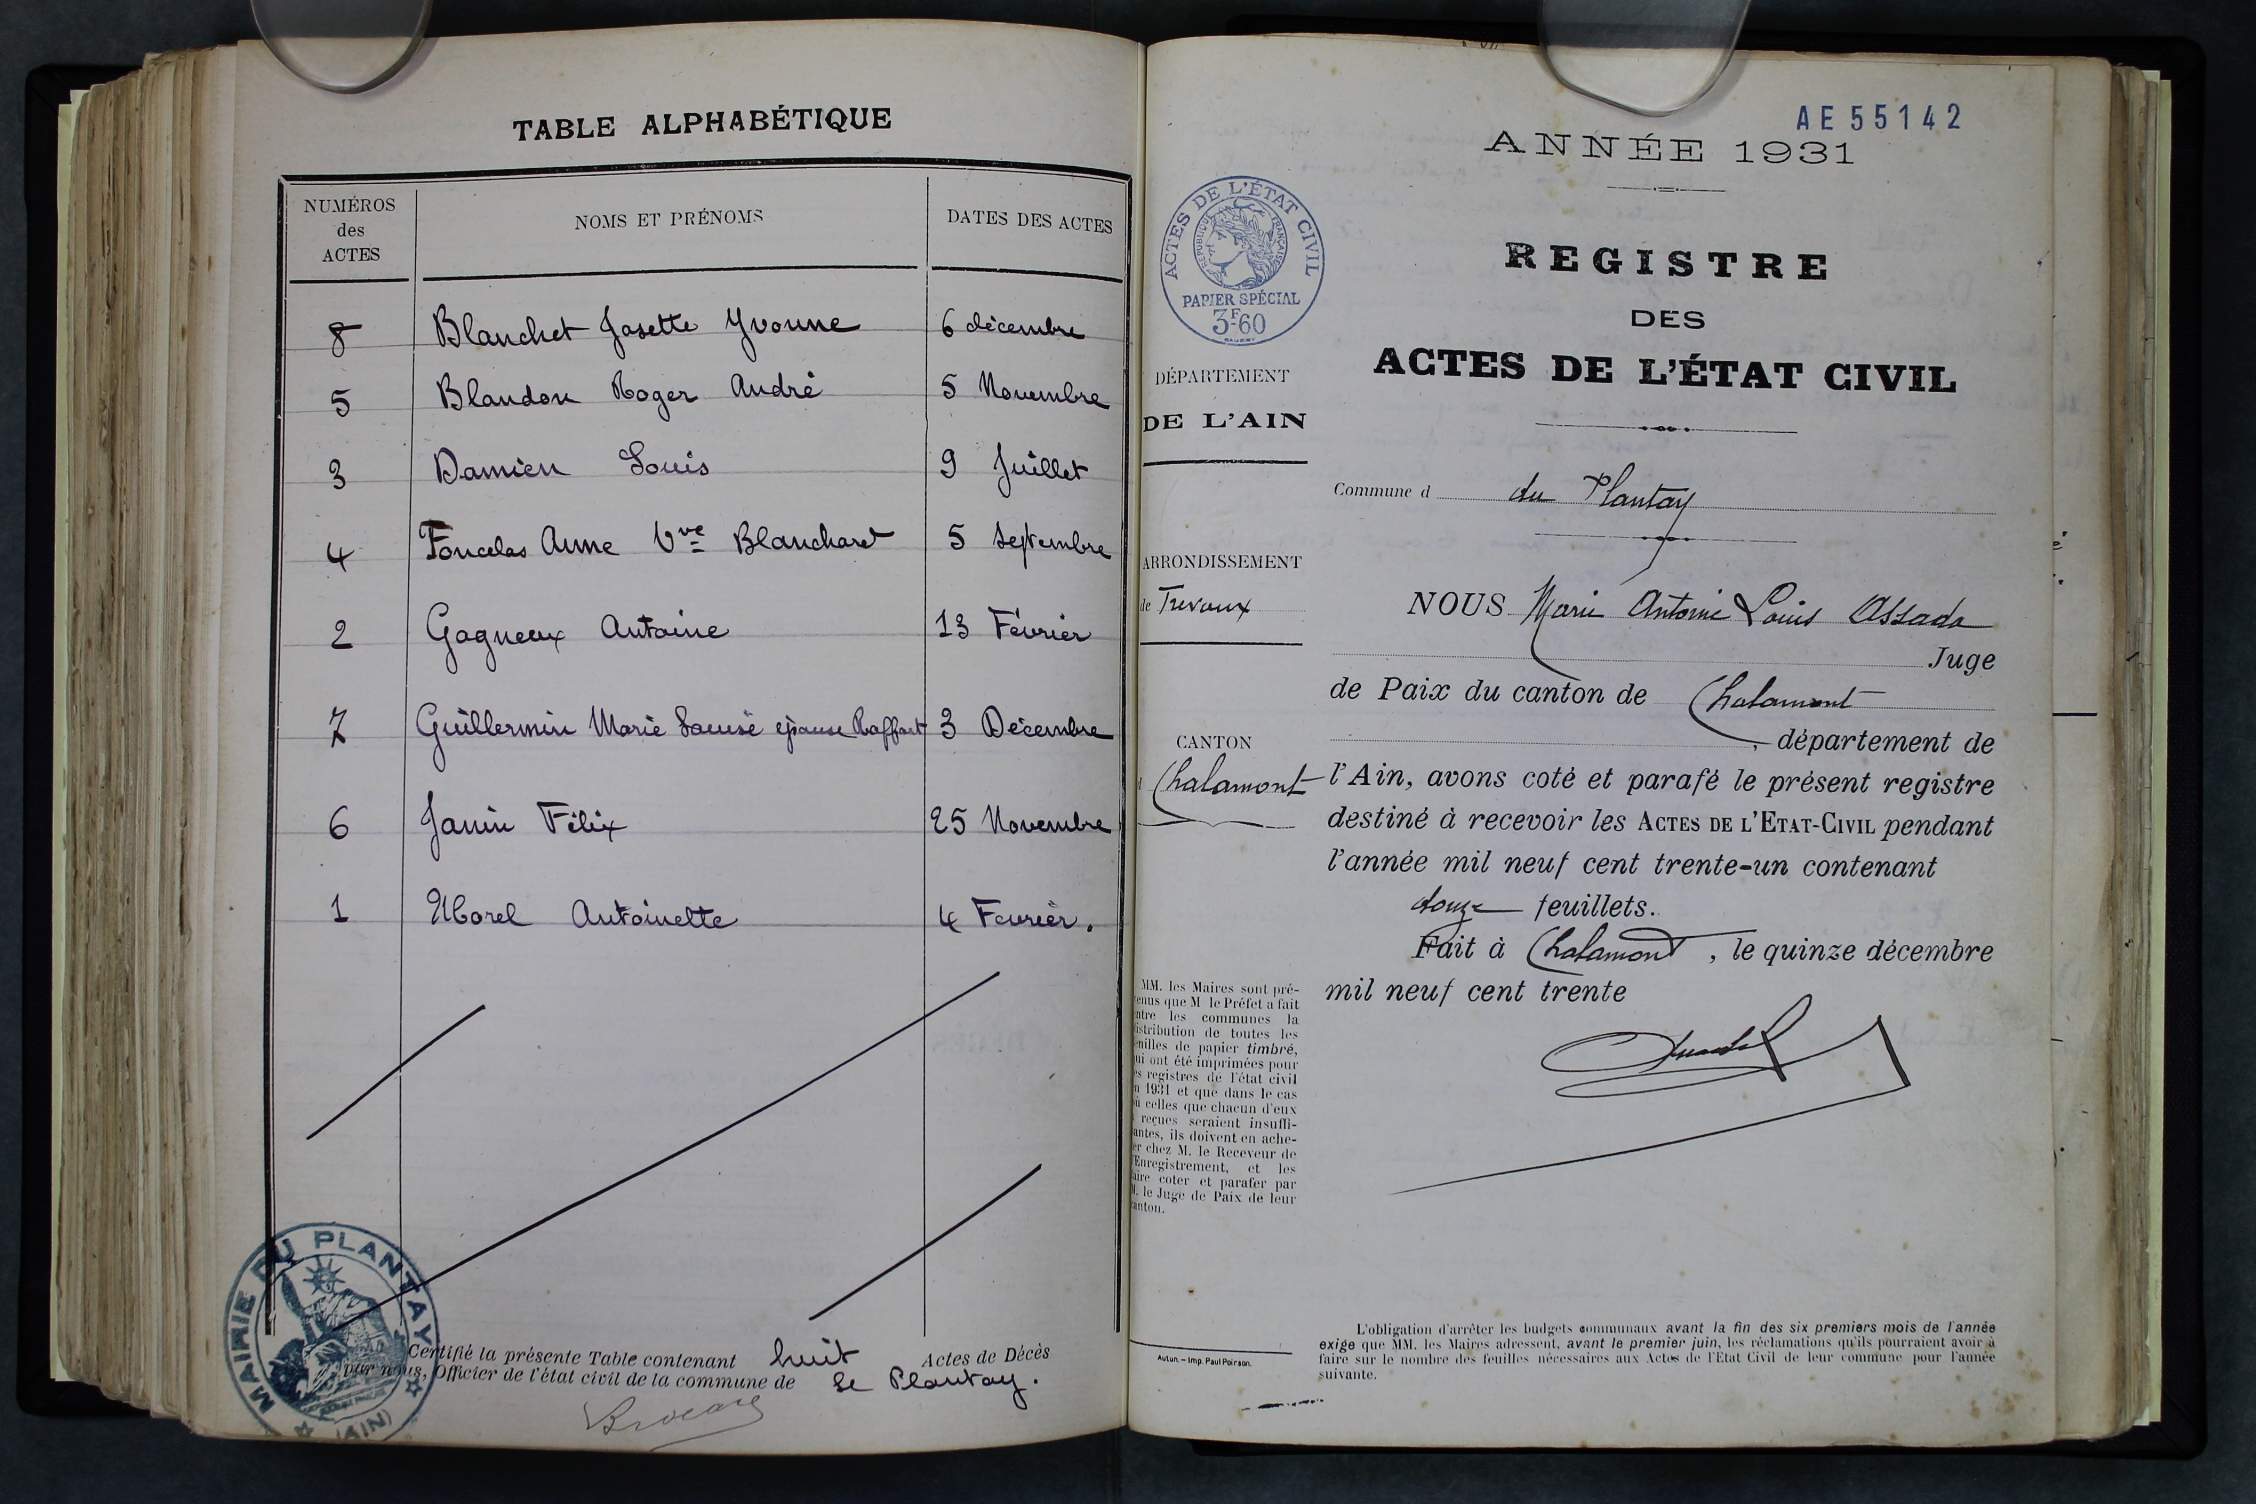 TABLE ALPHABÉTIQUE
NUMÉROS des ACTES NOMS ET PRÉNOMS DATES DES ACTES
8 Blanchet Josette Yvonne 6 décembre
5 Blandon Roger André 5 Novembre
3 Damien Louis 9 Juillet
4 Foncelas Anne Vve Blanchard 5 Septembre
2 Gagneux Antoine 13 Février
7 Guillermin Marie épouse Raffart 3 Décembre
6 Janin Félix 25 Novembre
1 Morel Antoinette 4 Fevrier.
Certifié la présente Table contenant huit Actes de Décès
par nous, Officier de l'état civil de la commune de Le Plantay.
MAIRIE DU PLANTAY
(AIN)
AE 55142
ANNÉE 1931
ACTES DE L'ÉTAT CIVIL
RÉPUBLIQUE FRANÇAISE
PAPIER SPÉCIAL
3F60
REGISTRE
DES
ACTES DE L'ÉTAT CIVIL
DÉPARTEMENT
DE L'AIN
ARRONDISSEMENT
de Trevoux
CANTON
Chalamont
MM. les Maires sont pré-
enus que M le Préfet a fait
ntre les communes la
istribution de toutes les
euilles de papier timbré,
ui ont été imprimées pour
es registres de l'état civil
n 1931 et que dans le cas
ù celles que chacun d'eux
reçues seraient insuffi-
antes, ils doivent en ache-
er chez M. le Receveur de
'Enregistrement, et les
aire coter et parafer par
M. le Juge de Paix de leur
anton.
Autun. — Imp. Paul Poirson.
Commune d du Plantay
NOUS Marie Antoine Louis Assada
Juge
de Paix du canton de Chalamont
, département de
l'Ain, avons coté et parafé le présent registre
destiné à recevoir les ACTES DE L'ETAT-CIVIL pendant
l'année mil neuf cent trente-un contenant
douze feuillets.
Fait à Chalamont, le quinze décembre
mil neuf cent trente
L'obligation d'arrêter les budgets communaux avant la fin des six premiers mois de l'année
exige que MM. les Maires adressent, avant le premier juin, les réclamations qu'ils pourraient avoir à
faire sur le nombre des feuilles nécessaires aux Actes de l'Etat Civil de leur commune pour l'année
suivante.